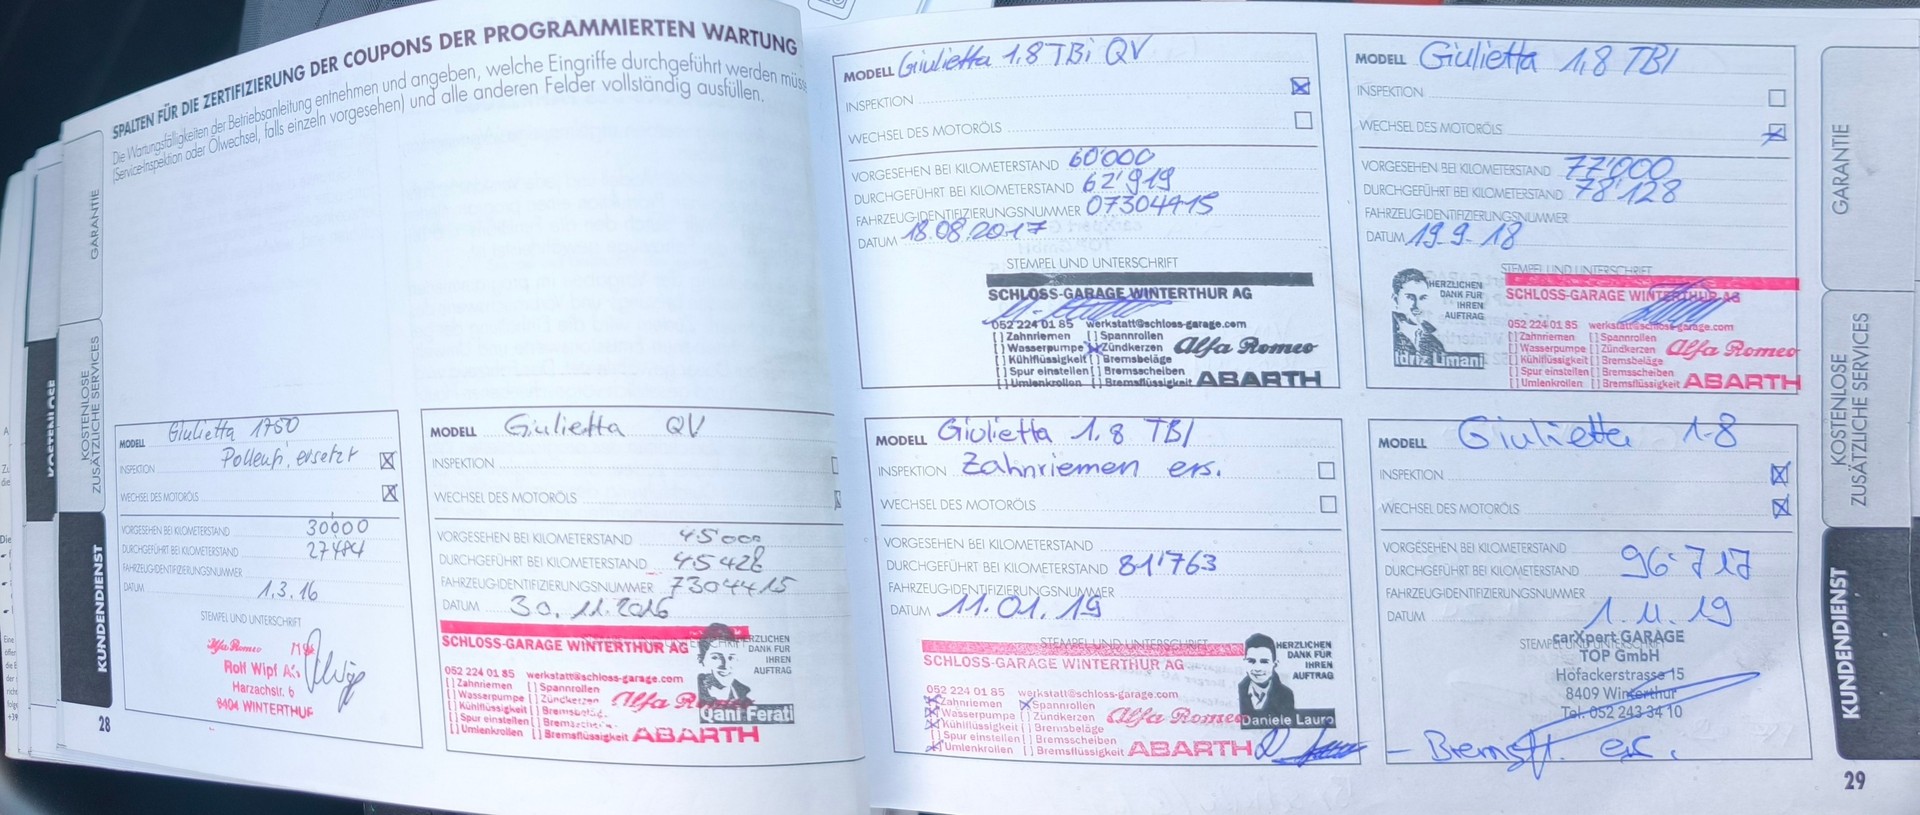 SPALTEN FÜR DIE ZERTIFIZIERUNG DER COUPONS DER PROGRAMMIERTEN WARTUNG
Die Wartungsfälligkeiten der Betriebsanleitung entnehmen und angeben, welche Eingriffe durchgeführt werden
(Service-Inspektion oder Ölwechsel, falls einzeln vorgesehen) und alle anderen Felder vollständig ausfüllen.
GARANTIE
KOSTENLOSE
ZUSÄTZLICHE SERVICES
KUNDENDIENST
MODELL Giulietta 1750
Pollenfi. ersetzt
INSPEKTION
WECHSEL DES MOTORÖLS
VORGESEHEN BEI KILOMETERSTAND 30000
DURCHGEFÜHRT BEI KILOMETERSTAND 27484
FAHRZEUG-IDENTIFIZIERUNGSNUMMER
DATUM 1.3.16
STEMPEL UND UNTERSCHRIFT
Alfa Romeo
Rolf Wipf AG
Harzachstr. 6
8404 WINTERTHUR
28
MODELL Giulietta QV
INSPEKTION
WECHSEL DES MOTORÖLS
VORGESEHEN BEI KILOMETERSTAND 45'000
DURCHGEFÜHRT BEI KILOMETERSTAND 45428
FAHRZEUG-IDENTIFIZIERUNGSNUMMER 7304415
DATUM 30.11.2016
SCHLOSS-GARAGE WINTERTHUR AG
HERZLICHEN
DANK FÜR
IHREN
AUFTRAG
052 224 01 85 werkstatt@schloss-garage.com
[ ] Zahnriemen [ ] Spannrollen
[ ] Wasserpumpe [ ] Zündkerzen Alfa Romeo
[ ] Kühlflüssigkeit [ ] Bremsbeläge
[ ] Spur einstellen [ ] Bremsscheiben
[ ] Umlenkrollen [ ] Bremsflüssigkeit ABARTH
Qani Ferati
MODELL Giulietta 1.8 TBi QV
INSPEKTION
WECHSEL DES MOTORÖLS
VORGESEHEN BEI KILOMETERSTAND 60'000
DURCHGEFÜHRT BEI KILOMETERSTAND 62'919
FAHRZEUG-IDENTIFIZIERUNGSNUMMER 07304415
DATUM 18.08.2017
STEMPEL UND UNTERSCHRIFT
SCHLOSS-GARAGE WINTERTHUR AG
052 224 01 85 werkstatt@schloss-garage.com
[ ] Zahnriemen [ ] Spannrollen
[ ] Wasserpumpe [x] Zündkerzen Alfa Romeo
[ ] Kühlflüssigkeit [ ] Bremsbeläge
[ ] Spur einstellen [ ] Bremsscheiben
[ ] Umlenkrollen [ ] Bremsflüssigkeit ABARTH
MODELL Giulietta 1,8 TBI
INSPEKTION
WECHSEL DES MOTORÖLS
VORGESEHEN BEI KILOMETERSTAND 77'000
DURCHGEFÜHRT BEI KILOMETERSTAND 78'128
FAHRZEUG-IDENTIFIZIERUNGSNUMMER
DATUM 19.9.18
STEMPEL UND UNTERSCHRIFT
HERZLICHEN
DANK FÜR
IHREN
AUFTRAG
Idriz Limani
SCHLOSS-GARAGE WINTERTHUR AG
052 224 01 85 werkstatt@schloss-garage.com
[ ] Zahnriemen [ ] Spannrollen
[ ] Wasserpumpe [ ] Zündkerzen Alfa Romeo
[ ] Kühlflüssigkeit [ ] Bremsbeläge
[ ] Spur einstellen [ ] Bremsscheiben
[ ] Umlenkrollen [ ] Bremsflüssigkeit ABARTH
MODELL Giulietta 1.8 TBI
INSPEKTION Zahnriemen ers.
WECHSEL DES MOTORÖLS
VORGESEHEN BEI KILOMETERSTAND
DURCHGEFÜHRT BEI KILOMETERSTAND 81'763
FAHRZEUG-IDENTIFIZIERUNGSNUMMER
DATUM 11.01.19
STEMPEL UND UNTERSCHRIFT
SCHLOSS-GARAGE WINTERTHUR AG
HERZLICHEN
DANK FÜR
IHREN
AUFTRAG
052 224 01 85 werkstatt@schloss-garage.com
[x] Zahnriemen [x] Spannrollen
[x] Wasserpumpe [ ] Zündkerzen Alfa Romeo
[x] Kühlflüssigkeit [ ] Bremsbeläge
[ ] Spur einstellen [ ] Bremsscheiben
[x] Umlenkrollen [ ] Bremsflüssigkeit ABARTH
Daniele Lauro
MODELL Giulietta 1-8
INSPEKTION
WECHSEL DES MOTORÖLS
VORGESEHEN BEI KILOMETERSTAND
DURCHGEFÜHRT BEI KILOMETERSTAND 96-717
FAHRZEUG-IDENTIFIZIERUNGSNUMMER
DATUM 1.11.19
STEMPEL UND UNTERSCHRIFT
carXpert GARAGE
TOP GmbH
Höfackerstrasse 15
8409 Winterthur
Tel. 052 243 34 10
- Bremsfl. ers.
GARANTIE
KOSTENLOSE
ZUSÄTZLICHE SERVICES
KUNDENDIENST
29